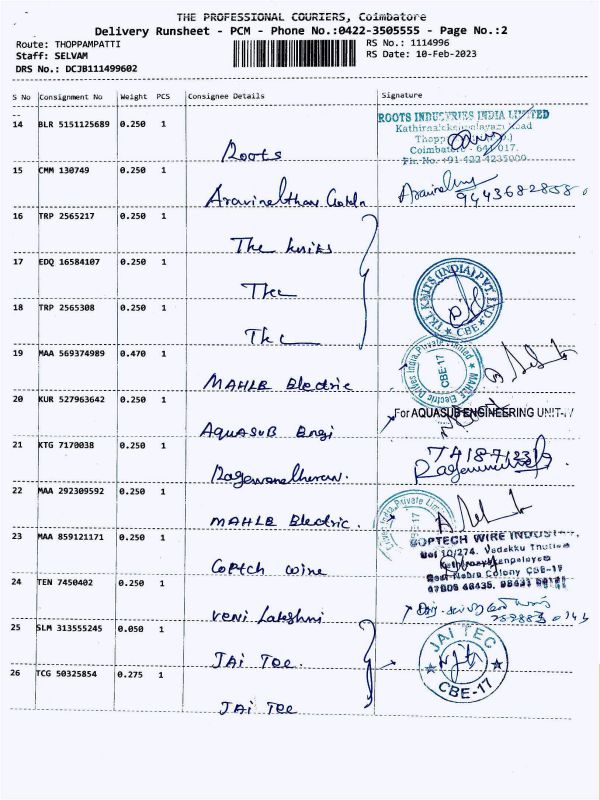 THE PROFESSIONAL COURIERS, Coimbatore
Delivery Runsheet - PCM - Phone No.:0422-3505555 - Page No.:2
Route: THOPPAMPATTI RS No.: 1114996
Staff: SELVAM RS Date: 10-Feb-2023
DRS No.: DCJB111499602
S No Consignment No Weight PCS Consignee Details Signature
14 BLR 5151125689 0.250 1 Roots
ROOTS INDUSTRIES INDIA LIMITED
Coimbatore - 641 017.
Ph. No. +91 422 4235000
15 CMM 130749 0.250 1
9443682858
16 TRP 2565217 0.250 1 The knits
17 EDQ 16584107 0.250 1
TKL KNITS (INDIA) PVT. LTD
CBE
18 TRP 2565308 0.250 1
19 MAA 569374989 0.470 1 MAHLE Electric
CBE-17
20 KUR 527963642 0.250 1 AQUASUB Engi
For AQUASUB ENGINEERING UNIT-
21 KTG 7170038 0.250 1
22 MAA 292309592 0.250 1 MAHLE Electric.
India Private Limited
23 MAA 859121171 0.250 1 Coptch wire
COPTECH WIRE INDUST
10/274, Vadakku
Colony CBE-17
24 TEN 7450402 0.250 1 Veni Lakshmi
25 SLM 313555245 0.050 1 JAi Tec.
JAI TEC
CBE-17
26 TCG 50325854 0.275 1 JAi Tec